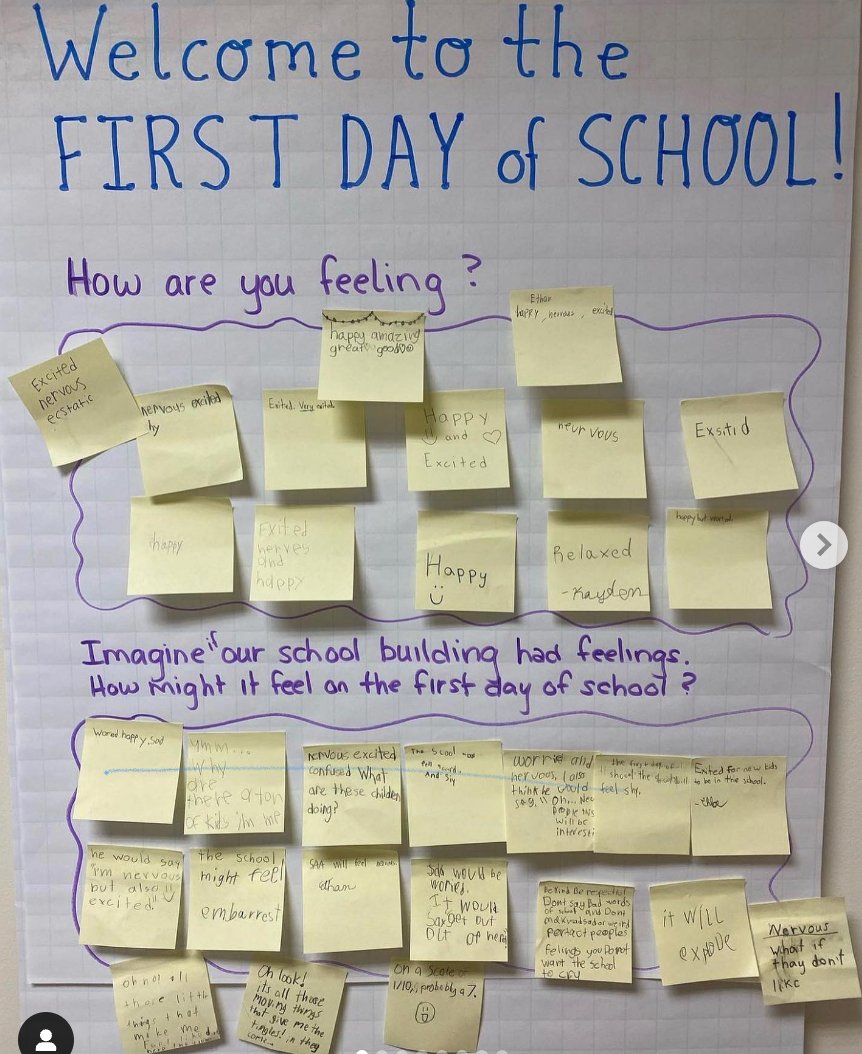 Welcome to the
FIRST DAY of SCHOOL!
How are you feeling?
Ethan
happy, nervous, excited
happy amazing
great good
Excited
nervous
ecstatic
nervous excited
Exited. Very
Happy
and
Excited
neurvous
Exsitid
happy
Exited
nerves
and
happy
Happy
Relaxed
-Kayden
happy but
Imagine if our school building had feelings.
How might it feel on the first day of school?
happy, Sad
ymm...
why
are
there a ton
of kids in me
nervous excited
confused What
are these children
doing?
The Scool
And Shy
worrie and
nervous, I also
think he would
say, "Oh... New
people this
will be
the first day of
feel shy.
Exited for new kids
to be in the school.
he would say
"i'm nervous
but also
excited."
the school
might feel
embarrest
SAA will feel
ethan
SAA would be
woried.
It would
Say get out
OUT of here!
be kind be respectful
Dont say Bad words
of school and Dont
perfect peoples
Feelings you Do not
want the school
to cry
it will
expode
Nervous
what if
thay don't
like
oh no! all
those little
things that
make me
Oh look!
its all those
moving things
that give me the
tingles! n they
come
on a scale of
1/10, probably a 7.